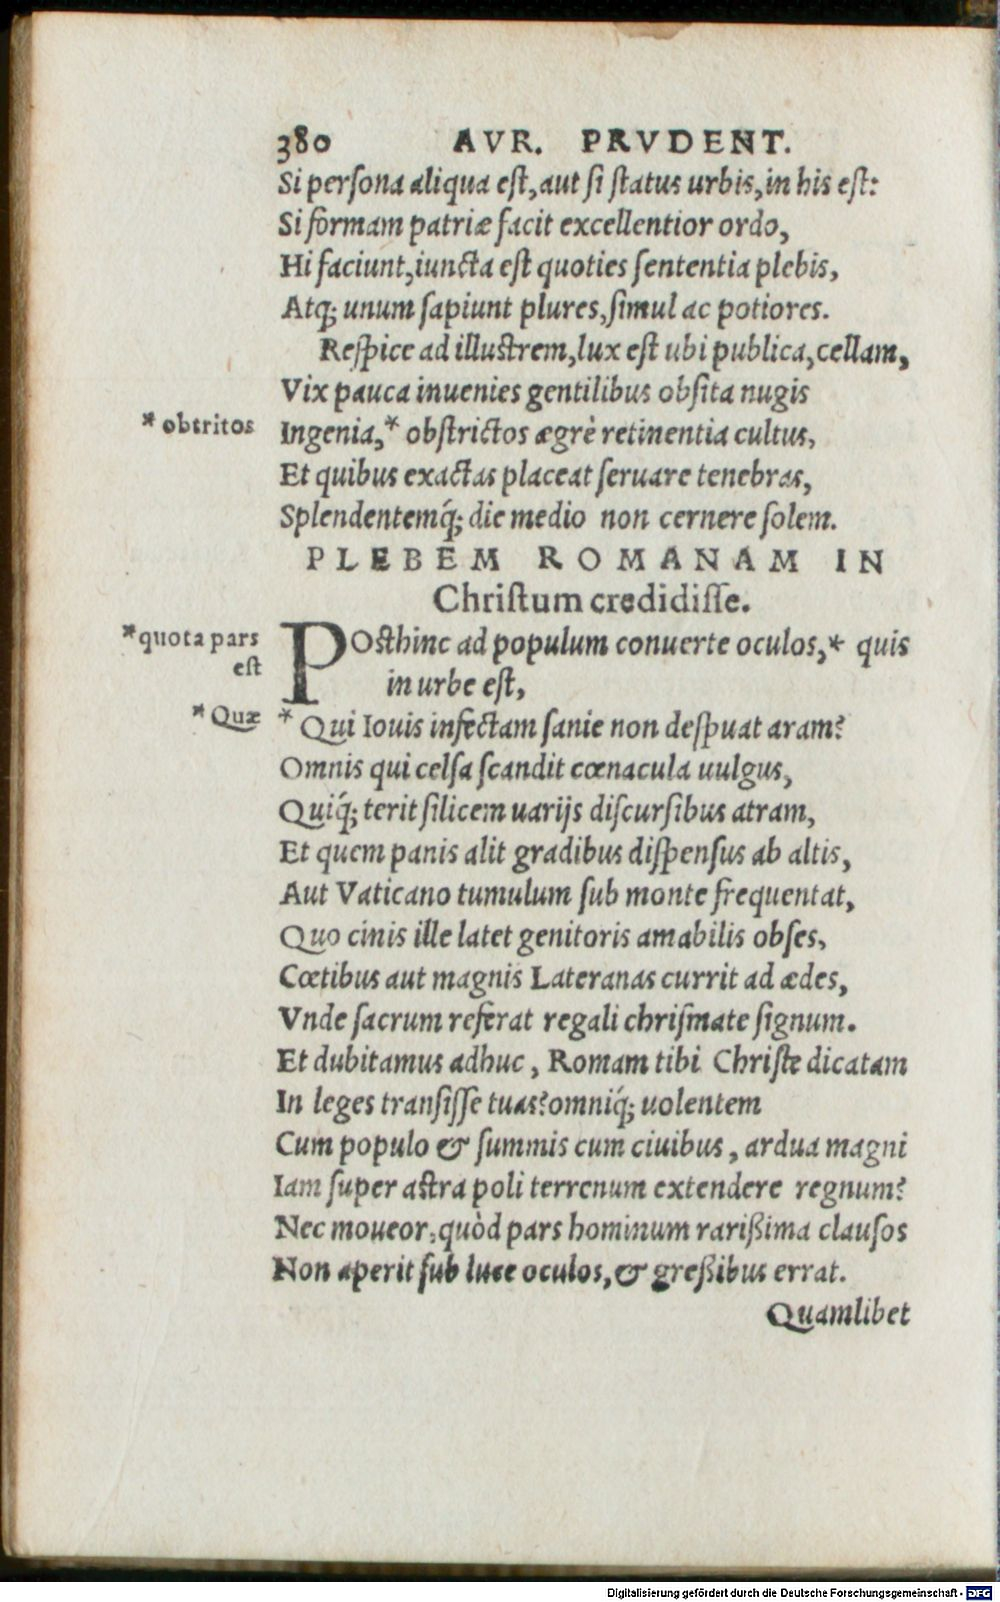 380 AVR. PRVDENT.
Si perſona aliqua eſt, aut ſi ſtatus urbis, in his eſt:
Si formam patriæ facit excellentior ordo,
Hi faciunt, iuncta eſt quoties ſententia plebis,
Atq; unum ſapiunt plures, ſimul ac potiores.
Reſpice ad illuſtrem, lux eſt ubi publica, cellam,
Vix pauca inuenies gentilibus obſita nugis
* obtritos
Ingenia,* obſtrictos ægrè retinentia cultus,
Et quibus exactas placeat ſeruare tenebras,
Splendentemq́; die medio non cernere ſolem.
PLEBEM ROMANAM IN
Chriſtum credidiſſe.
*quota pars
eſt
POſthinc ad populum conuerte oculos,* quis
in urbe eſt,
*Quæ
* Qui Iouis infectam ſanie non deſpuat aram?
Omnis qui celſa ſcandit cœnacula uulgus,
Quiq́; terit ſilicem uarijs diſcurſibus atram,
Et quem panis alit gradibus diſpenſus ab altis,
Aut Vaticano tumulum ſub monte frequentat,
Quo cinis ille latet genitoris amabilis obſes,
Cœtibus aut magnis Lateranas currit ad ædes,
Vnde ſacrum referat regali chriſmate ſignum.
Et dubitamus adhuc, Romam tibi Chriſte dicatam
In leges tranſiſſe tuas? omniq́; uolentem
Cum populo & ſummis cum ciuibus, ardua magni
Iam ſuper aſtra poli terrenum extendere regnum?
Nec moueor, quòd pars hominum rarißima clauſos
Non aperit ſub luce oculos, & greßibus errat.
Quamlibet
Digitalisierung gefördert durch die Deutsche Forschungsgemeinschaft - DFG